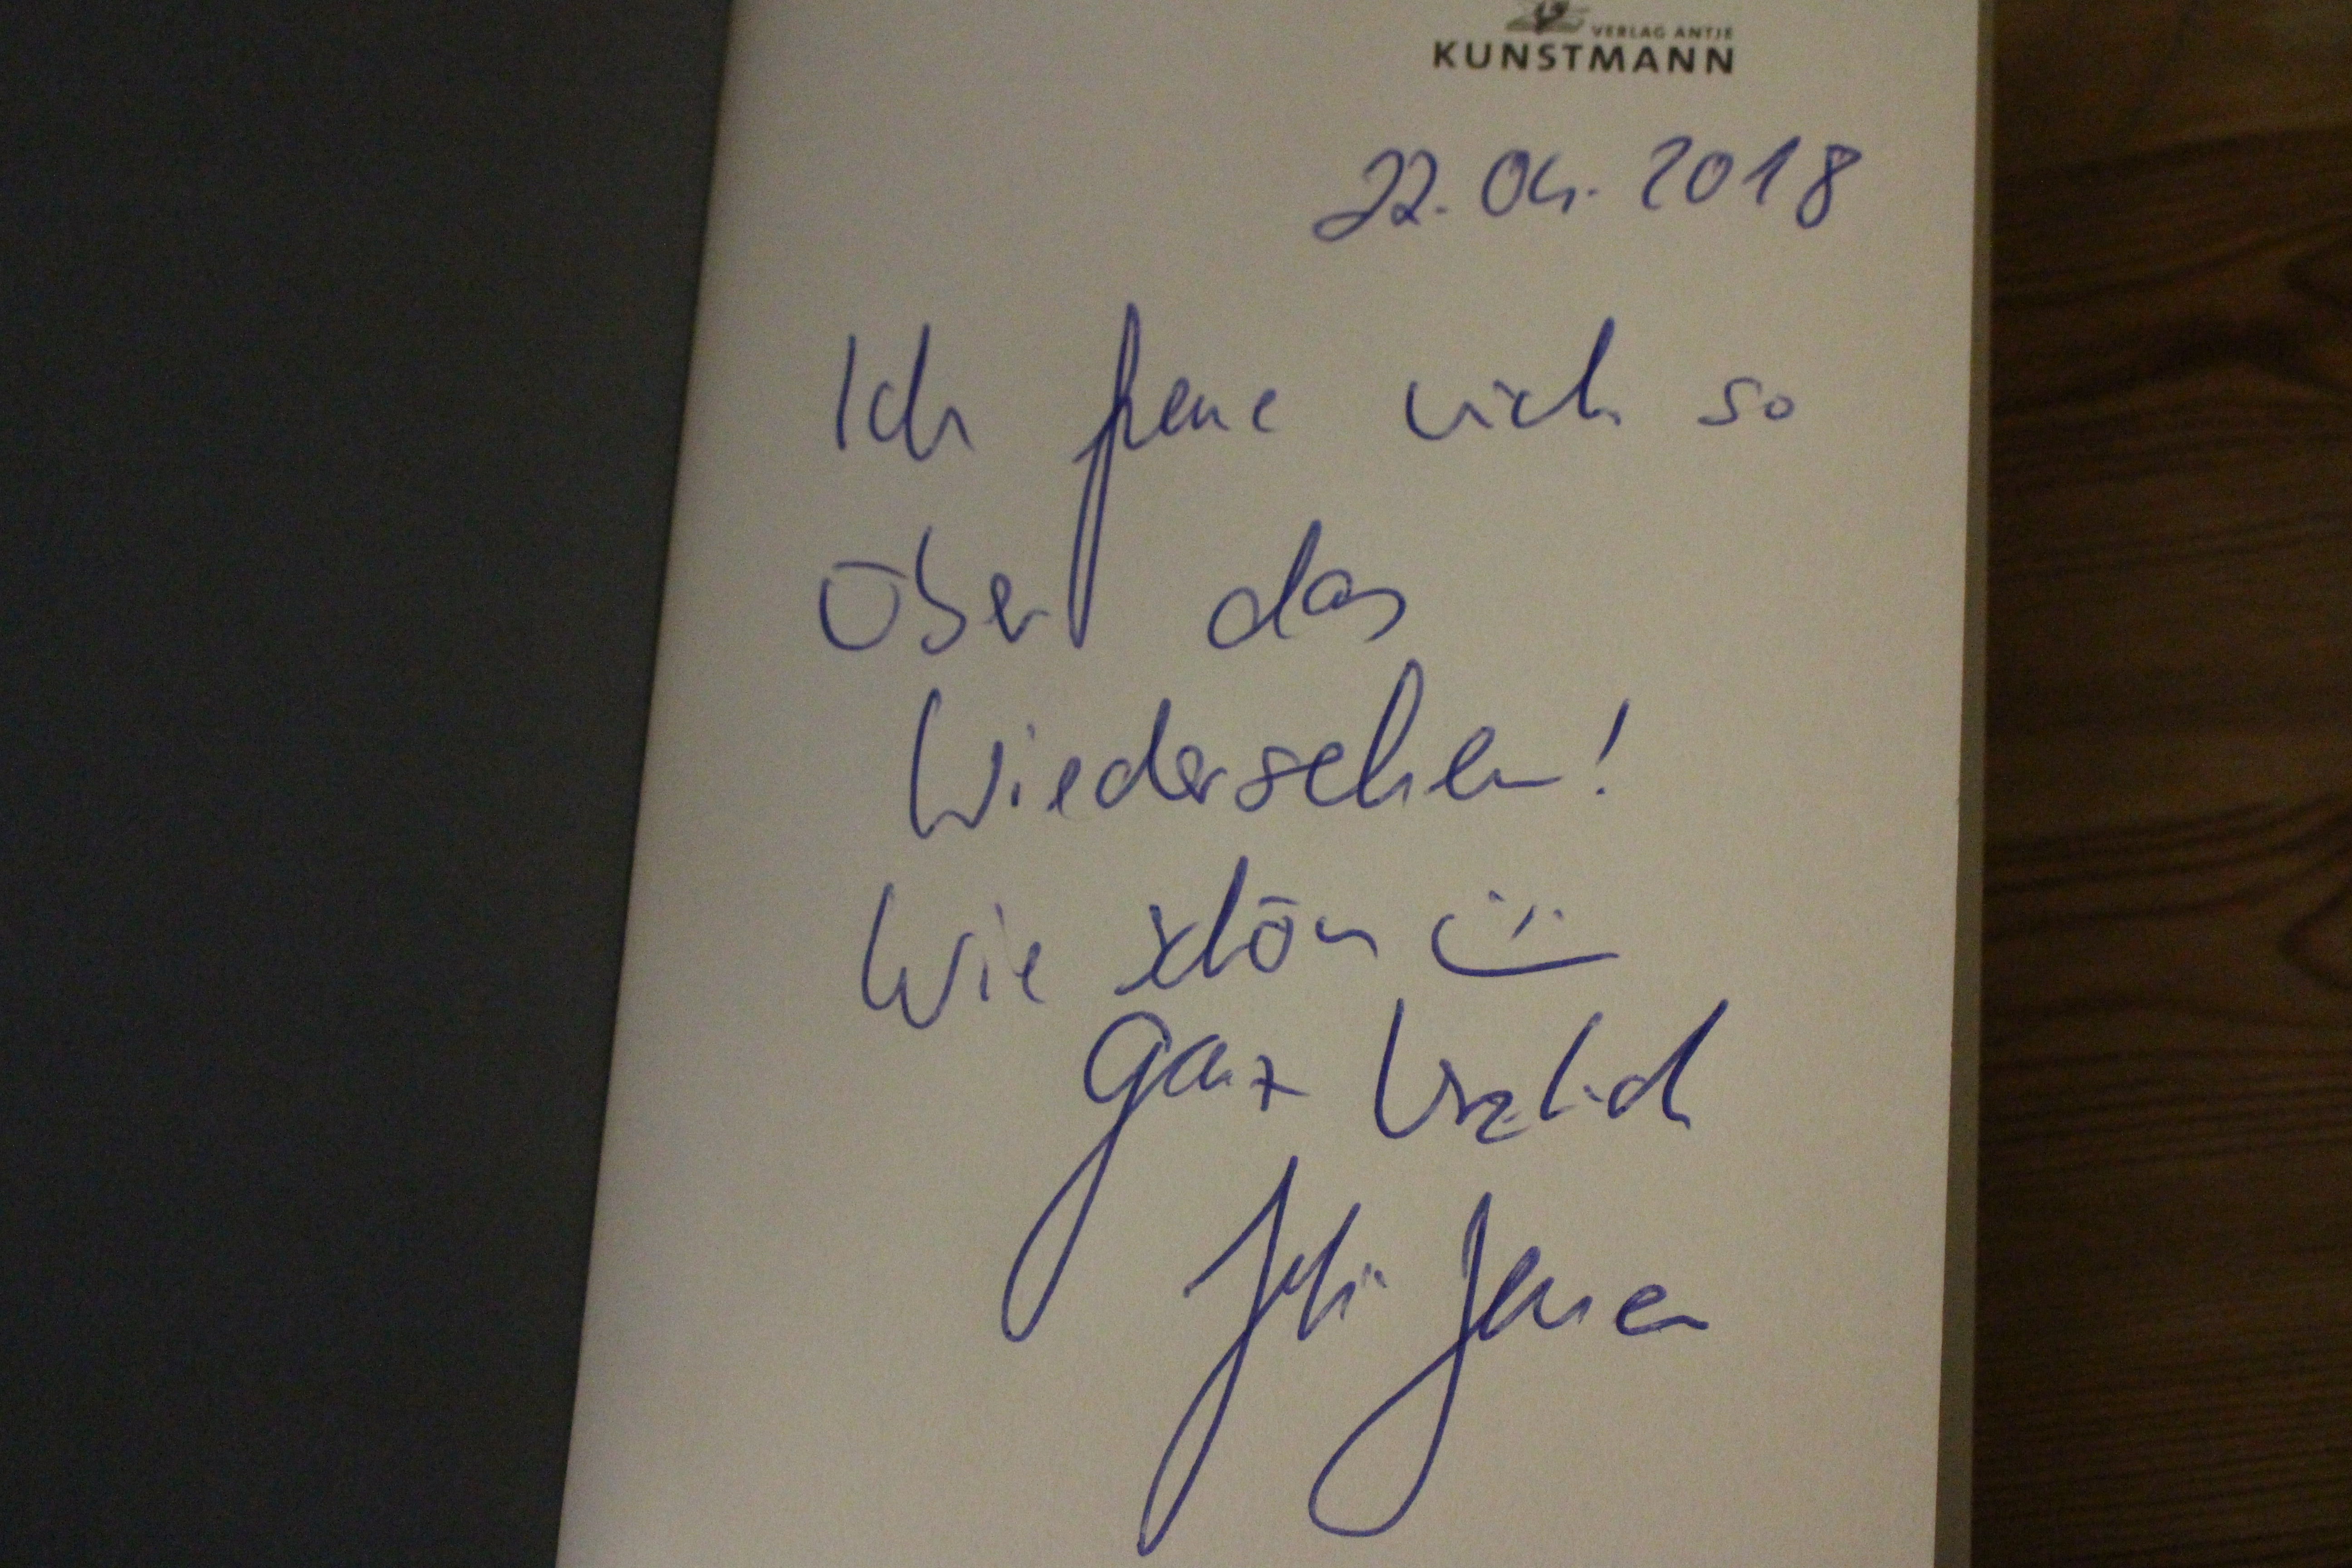 VERLAG ANTJE
KUNSTMANN
22.04.2018
Ich freue mich so
über das
Wiedersehen!
Wie schön
Ganz herzlich